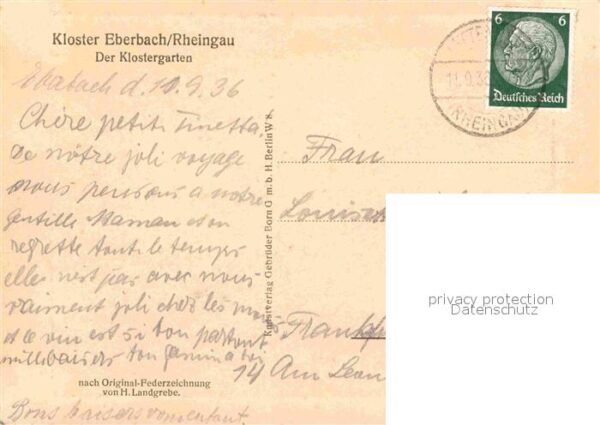 Kloster Eberbach/Rheingau
Der Klostergarten
Ebabach d. 10.9.36
Chère petit Ninetta
De nôtre joli voyage
nous pensons a notre
gentille Maman et on
regrette tout le temps
elle n'est pas avec nous
vraiment joli chez les
et le vin est si bon partout
mille baisers ton
nach Original-Federzeichnung
von H. Landgrebe.
Bons baisers
Kunstverlag Gebrüder Born G. m. b. H. Berlin W 8.
6 6
Deutsches Reich
11.9.36
(RHEINGAU)
Frau
Louise
Frankfu
14 Am
privacy protection
Datenschutz